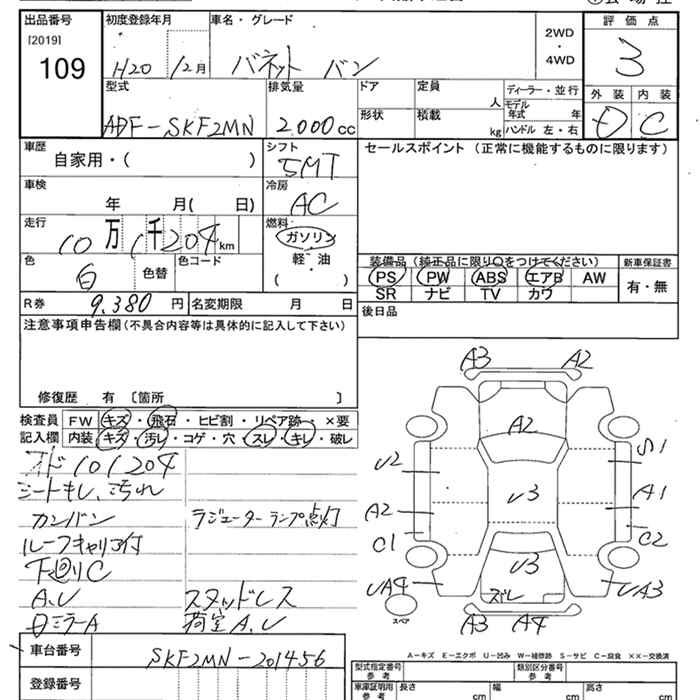 出品番号 初度登録年月 車名・グレード 2WD・4WD 評価点
[2019]
109 H20 12月 バネット バン 3
型式 排気量 ドア 定員 人 ディーラー・並行 外装 内装
ADF-SKF2MN 2.000cc 形状 積載 kg モデル年式 年 ハンドル 左・右 D C
車歴 シフト セールスポイント (正常に機能するものに限ります)
自家用・( ) 5MT
車検 冷房
年 月( 日) AC
走行 燃料
10万1千204km ガソリン
色 色替 色コード 軽・油 装備品 (純正品に限り○をつけてください) 新車保証書
白 ( ・ ) PS PW ABS エアB AW 有・無
SR ナビ TV カワ
R券 9,380円 名変期限 月 日 後日品
注意事項申告欄(不具合内容等は具体的に記入して下さい)
修復歴 有 〔箇所 〕
検査員 FW キズ・飛石・ヒビ割・リペア跡・×要
記入欄 内装 キズ・汚レ・コゲ・穴・スレ・キレ・破レ
101204
シートキレ、汚れ
カンバン ラジエーターランプ点灯
ルーフキャリコ付
下廻りC
A.U スタッドレス
日ミラーA 荷室A.U
A3 A2
A2
U2 S1
U3
A2 A1
C1 C2
U3
UA4 ズレ UA3
スペア
A3 A4
A-キズ E-エクボ U-凹み W-補修跡 S-サビ C-腐食 ××-交換済
車台番号 SKF2MN-201456
登録番号
型式指定番号 参考 類別区分番号 参考
車庫証明用 参考 長さ cm 幅 cm 高さ cm